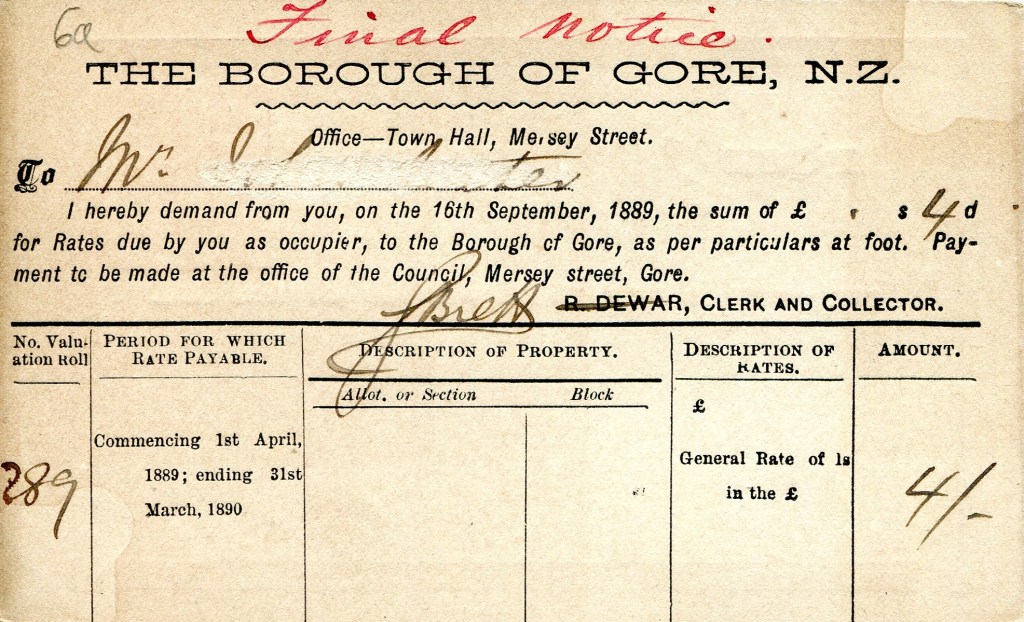 6a
Final Notice.
THE BOROUGH OF GORE, N.Z.
Office—Town Hall, Mersey Street.
To Mr
I hereby demand from you, on the 16th September, 1889, the sum of £ . s 4 d
for Rates due by you as occupier, to the Borough of Gore, as per particulars at foot. Pay-
ment to be made at the office of the Council, Mersey street, Gore.
R. DEWAR, CLERK AND COLLECTOR.
No. Valu-
ation Roll
PERIOD FOR WHICH
RATE PAYABLE.
DESCRIPTION OF PROPERTY.
Allot. or Section Block
DESCRIPTION OF
RATES.
AMOUNT.
289
Commencing 1st April,
1889; ending 31st
March, 1890
£
General Rate of 1s
in the £
4/-